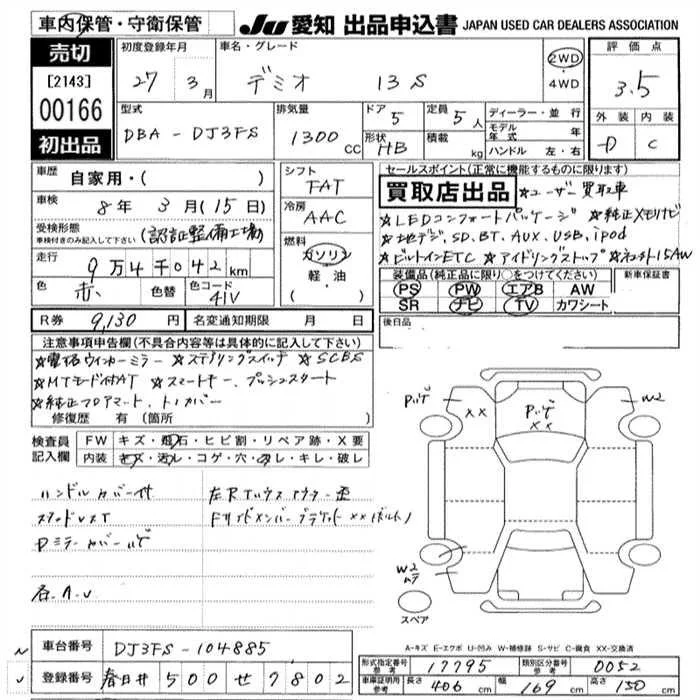 車内保管・守衛保管
JU 愛知 出品申込書 JAPAN USED CAR DEALERS ASSOCIATION
売切
[2143]
00166
初出品
初度登録年月
27 3月
車名・グレード
デミオ 13S
2WD
4WD
評価点
3.5
外装 内装
D C
型式
DBA-DJ3FS
排気量
1300 CC
ドア
5
形状
HB
定員
5人
積載
kg
ディーラー・並行
モデル年式 年
ハンドル 左・右
車歴
自家用・( )
車検
8年 3月(15日)
受検形態
車検付きのみ記入して下さい
(認証整備工場)
走行
9万4千042km
色
赤
色替
色コード
41V
シフト
FAT
冷房
AAC
燃料
ガソリン
軽・油
( )
セールスポイント(正常に機能するものに限ります)
買取店出品 ☆ユーザー買取車
☆LEDコンフォートパッケージ ☆純正メモリナビ
☆地デジ,SD,BT,AUX,USB,ipod
☆ビルトインETC ☆アイドリングストップ ☆ネット15AW
装備品(純正品に限り○をつけてください)
PS PW エアB AW
SR ナビ TV カワシート
新車保証書
後日品
R券 9,130円
名変通知期限 月 日
注意事項申告欄(不具合内容等は具体的に記入して下さい)
☆電格ウインカーミラー ☆ステアリングスイッチ ☆SCBS
☆MTモード付AT ☆スマートキー、プッシュスタート
☆純正フロアマット、トノカバー
修復歴 有(箇所 )
検査員記入欄
FW キズ・飛石・ヒビ割・リペア跡・X要
内装 キズ・汚レ・コゲ・穴・スレ・キレ・破レ
ハンドルカバー付
Dミラーカバーハゲ
各A.U
Pハゲ
XX
Pハゲ
XX
W2
W2
スペア
A-キズ E-エクボ U-凹み W-補修跡 S-サビ C-腐食 XX-交換済
車台番号 DJ3FS-104885
登録番号 春日井 500 せ 7802
形式指定番号
参考
17795
類別区分番号
参考
0052
車庫証明用
参考
長さ 406cm 幅 169cm 高さ 150cm